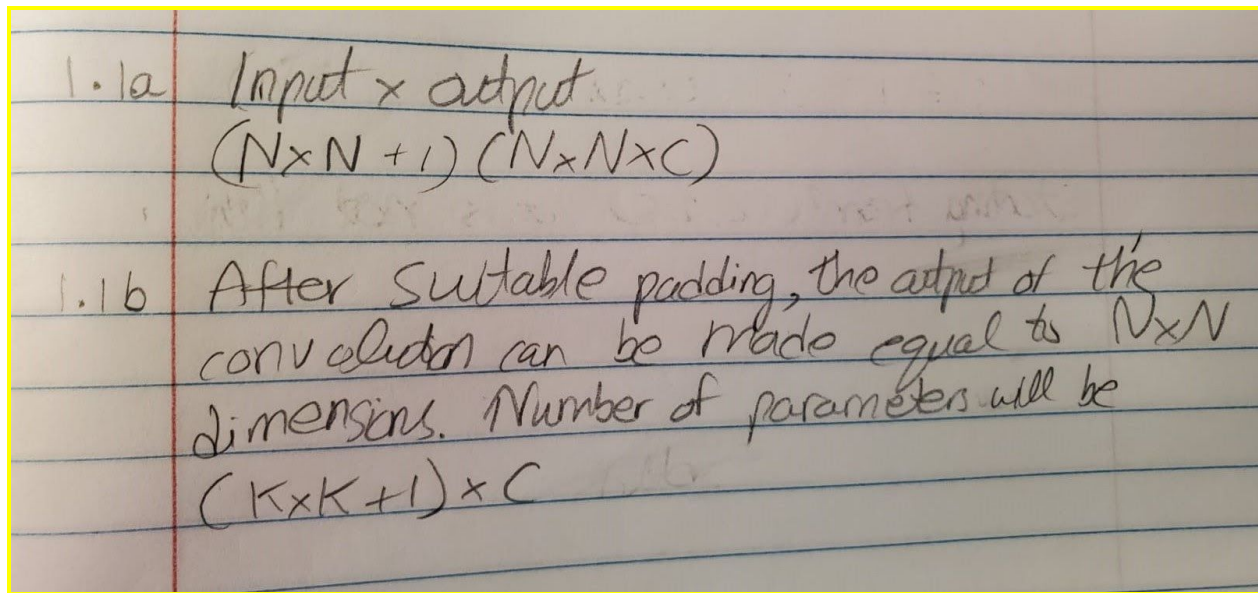 1.1a Input x output
(NxN + 1) (NxNxC)
1.1b After suitable padding, the output of the
convolution can be made equal to NxN
dimensions. Number of parameters will be
(KxK+1)xC